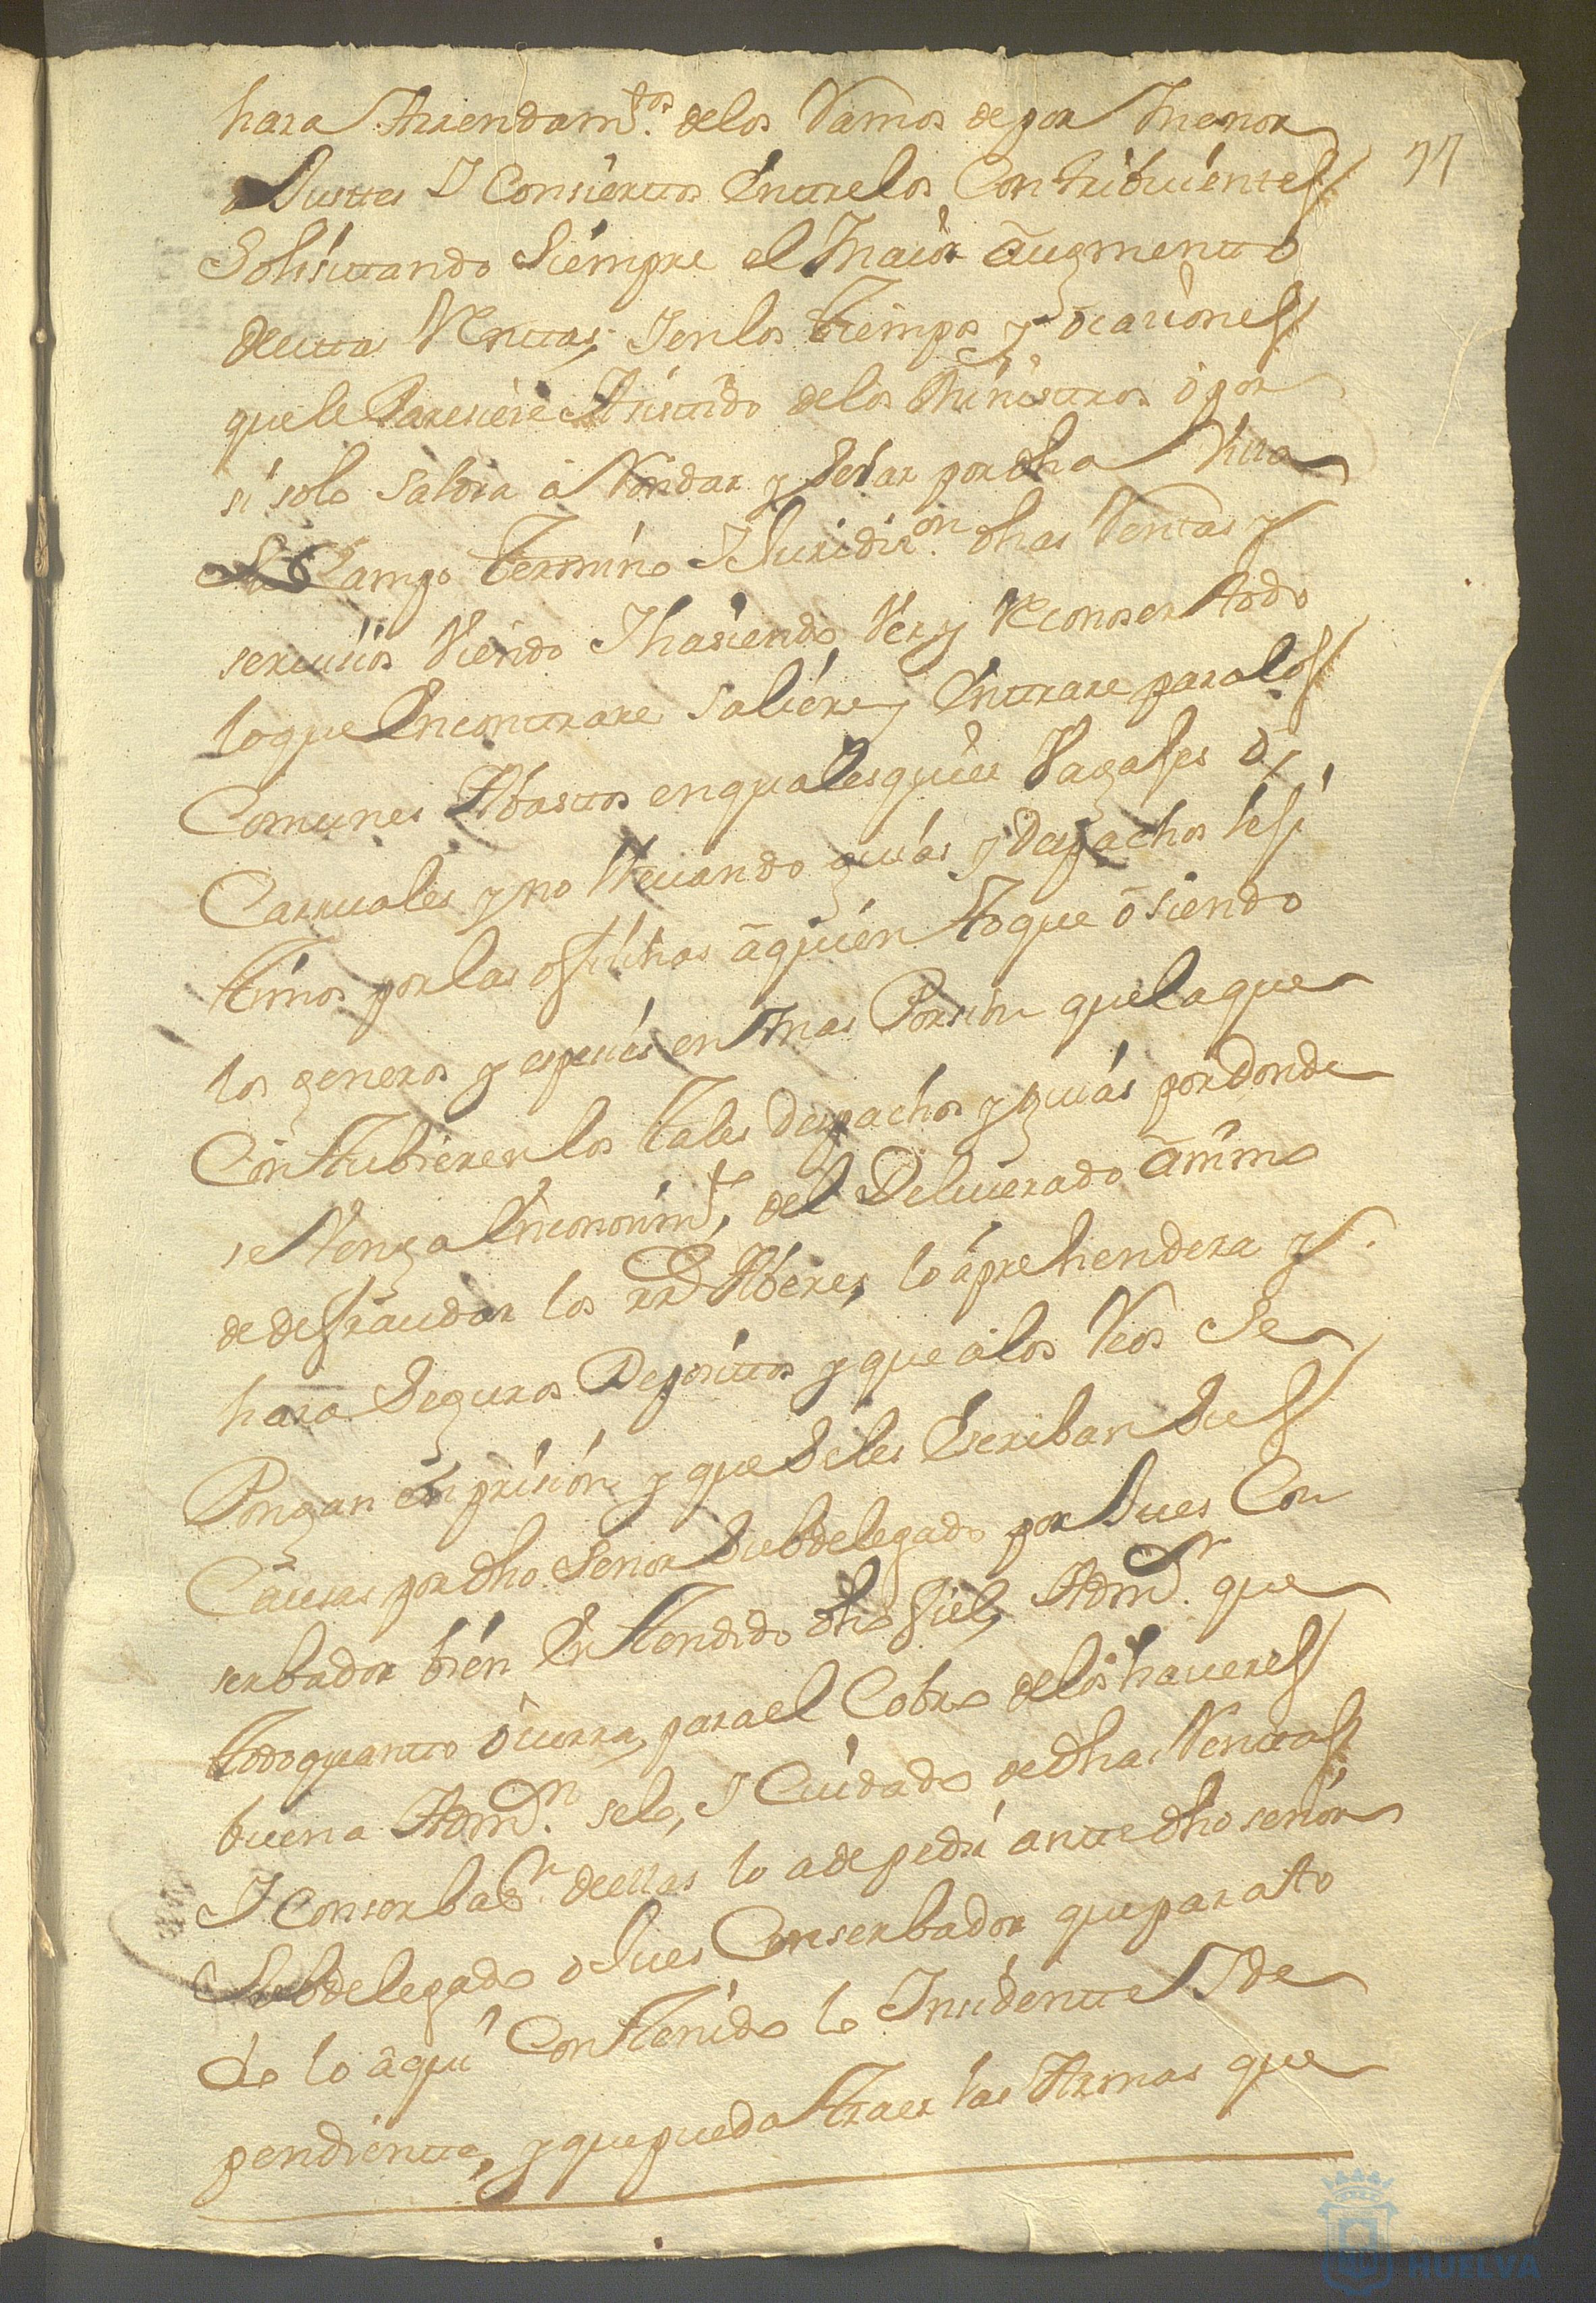 hara Arrendam.tos delos Ramos de por Menor
Ajustes I Consiertos Entrelos Contribuientes
Solisitando Siempre el Maior augmento
de estas Rentas, Ien los Tiempos y ocaciones
que le Paresiere Asistido delos Ministros o por
si solo Saldra a Rondar y Selar por dha Villa
su Campo Termino I Juridic.on dhas Rentas y
serucios Viendo I hasiendo Ver y Reconoser todo
lo que Encontrare Saliere y Entrare para los
Comunes Abastos en qualesquier Vagajes o
Carruales y no lleuando guias y Despachos lesi
timos por las ofisinas a quien toque o siendo
los generos y espesies en mas Porsion que la que
ContTubieren los Tales Despachos y guias por donde
se Venga En conosim.to del Deliuerado animo
de defraudar los rr.s Aberes, lo aprehendera y
hara Seguros Depositos y que a los Reos Se
Pongan en prision y que Seles Escriban Sus
Causas por dho Senor Subdelegado por Jues Con
serbador bien EnTendido dho fiel, Adm.r que
Todo quanto ocurra para el Cobro delos haueres
buena Adm.n selo, I Cuidado de dhas Rentas
I Conserbas.n deellas lo a de pedir ante dho senor
Subdelegado o Jues Conserbador que para to
do lo aqui ConTenido lo Insidente I de
pendiente, y que pueda Traer las Armas que
77
HUELVA